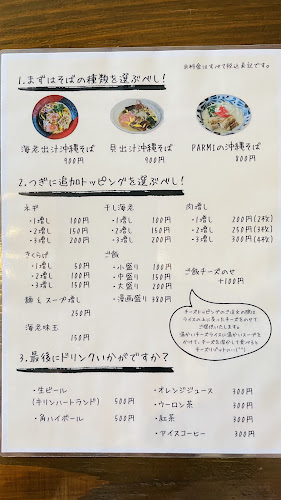 お料金はすべて税込表記です。
1.まずはそばの種類を選ぶべし！
海老出汁沖縄そば
900円
貝出汁沖縄そば
900円
PARMIの沖縄そば
800円
2.つぎに追加トッピングを選ぶべし！
ネギ
・1増し 100円
・2増し 150円
・3増し 200円
干し海老
・1増し 100円
・2増し 150円
・3増し 200円
肉増し
・1増し 200円(2枚)
・2増し 250円(3枚)
・3増し 300円(4枚)
きくらげ
・1増し 50円
・2増し 100円
・3増し 150円
ご飯
・小盛り 100円
・中盛り 150円
・大盛り 200円
・漫画盛り 380円
ご飯チーズのせ
+100円
麺&スープ増し
250円
海老味玉
150円
チーズトッピングのご注文の際は
ライスの上に炙ったチーズをのせて
ご提供いたします。
温かいチーズライスに温かいスープを
かけて、チーズを溶かして食べると
チーズリゾットに
3.最後にドリンクいかがですか？
・生ビール
(キリンハートランド) 500円
・角ハイボール 500円
・オレンジジュース 300円
・ウーロン茶 300円
・紅茶 300円
・アイスコーヒー 300円